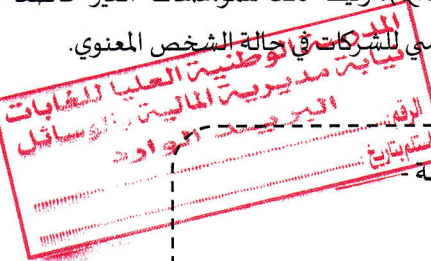 للشركات في حالة الشخص المعنوي.
المدرسة الوطنية العليا للغابات
نيابة مديرية المالية والوسائل
البريد الوارد
الرقم:
استلم بتاريخ